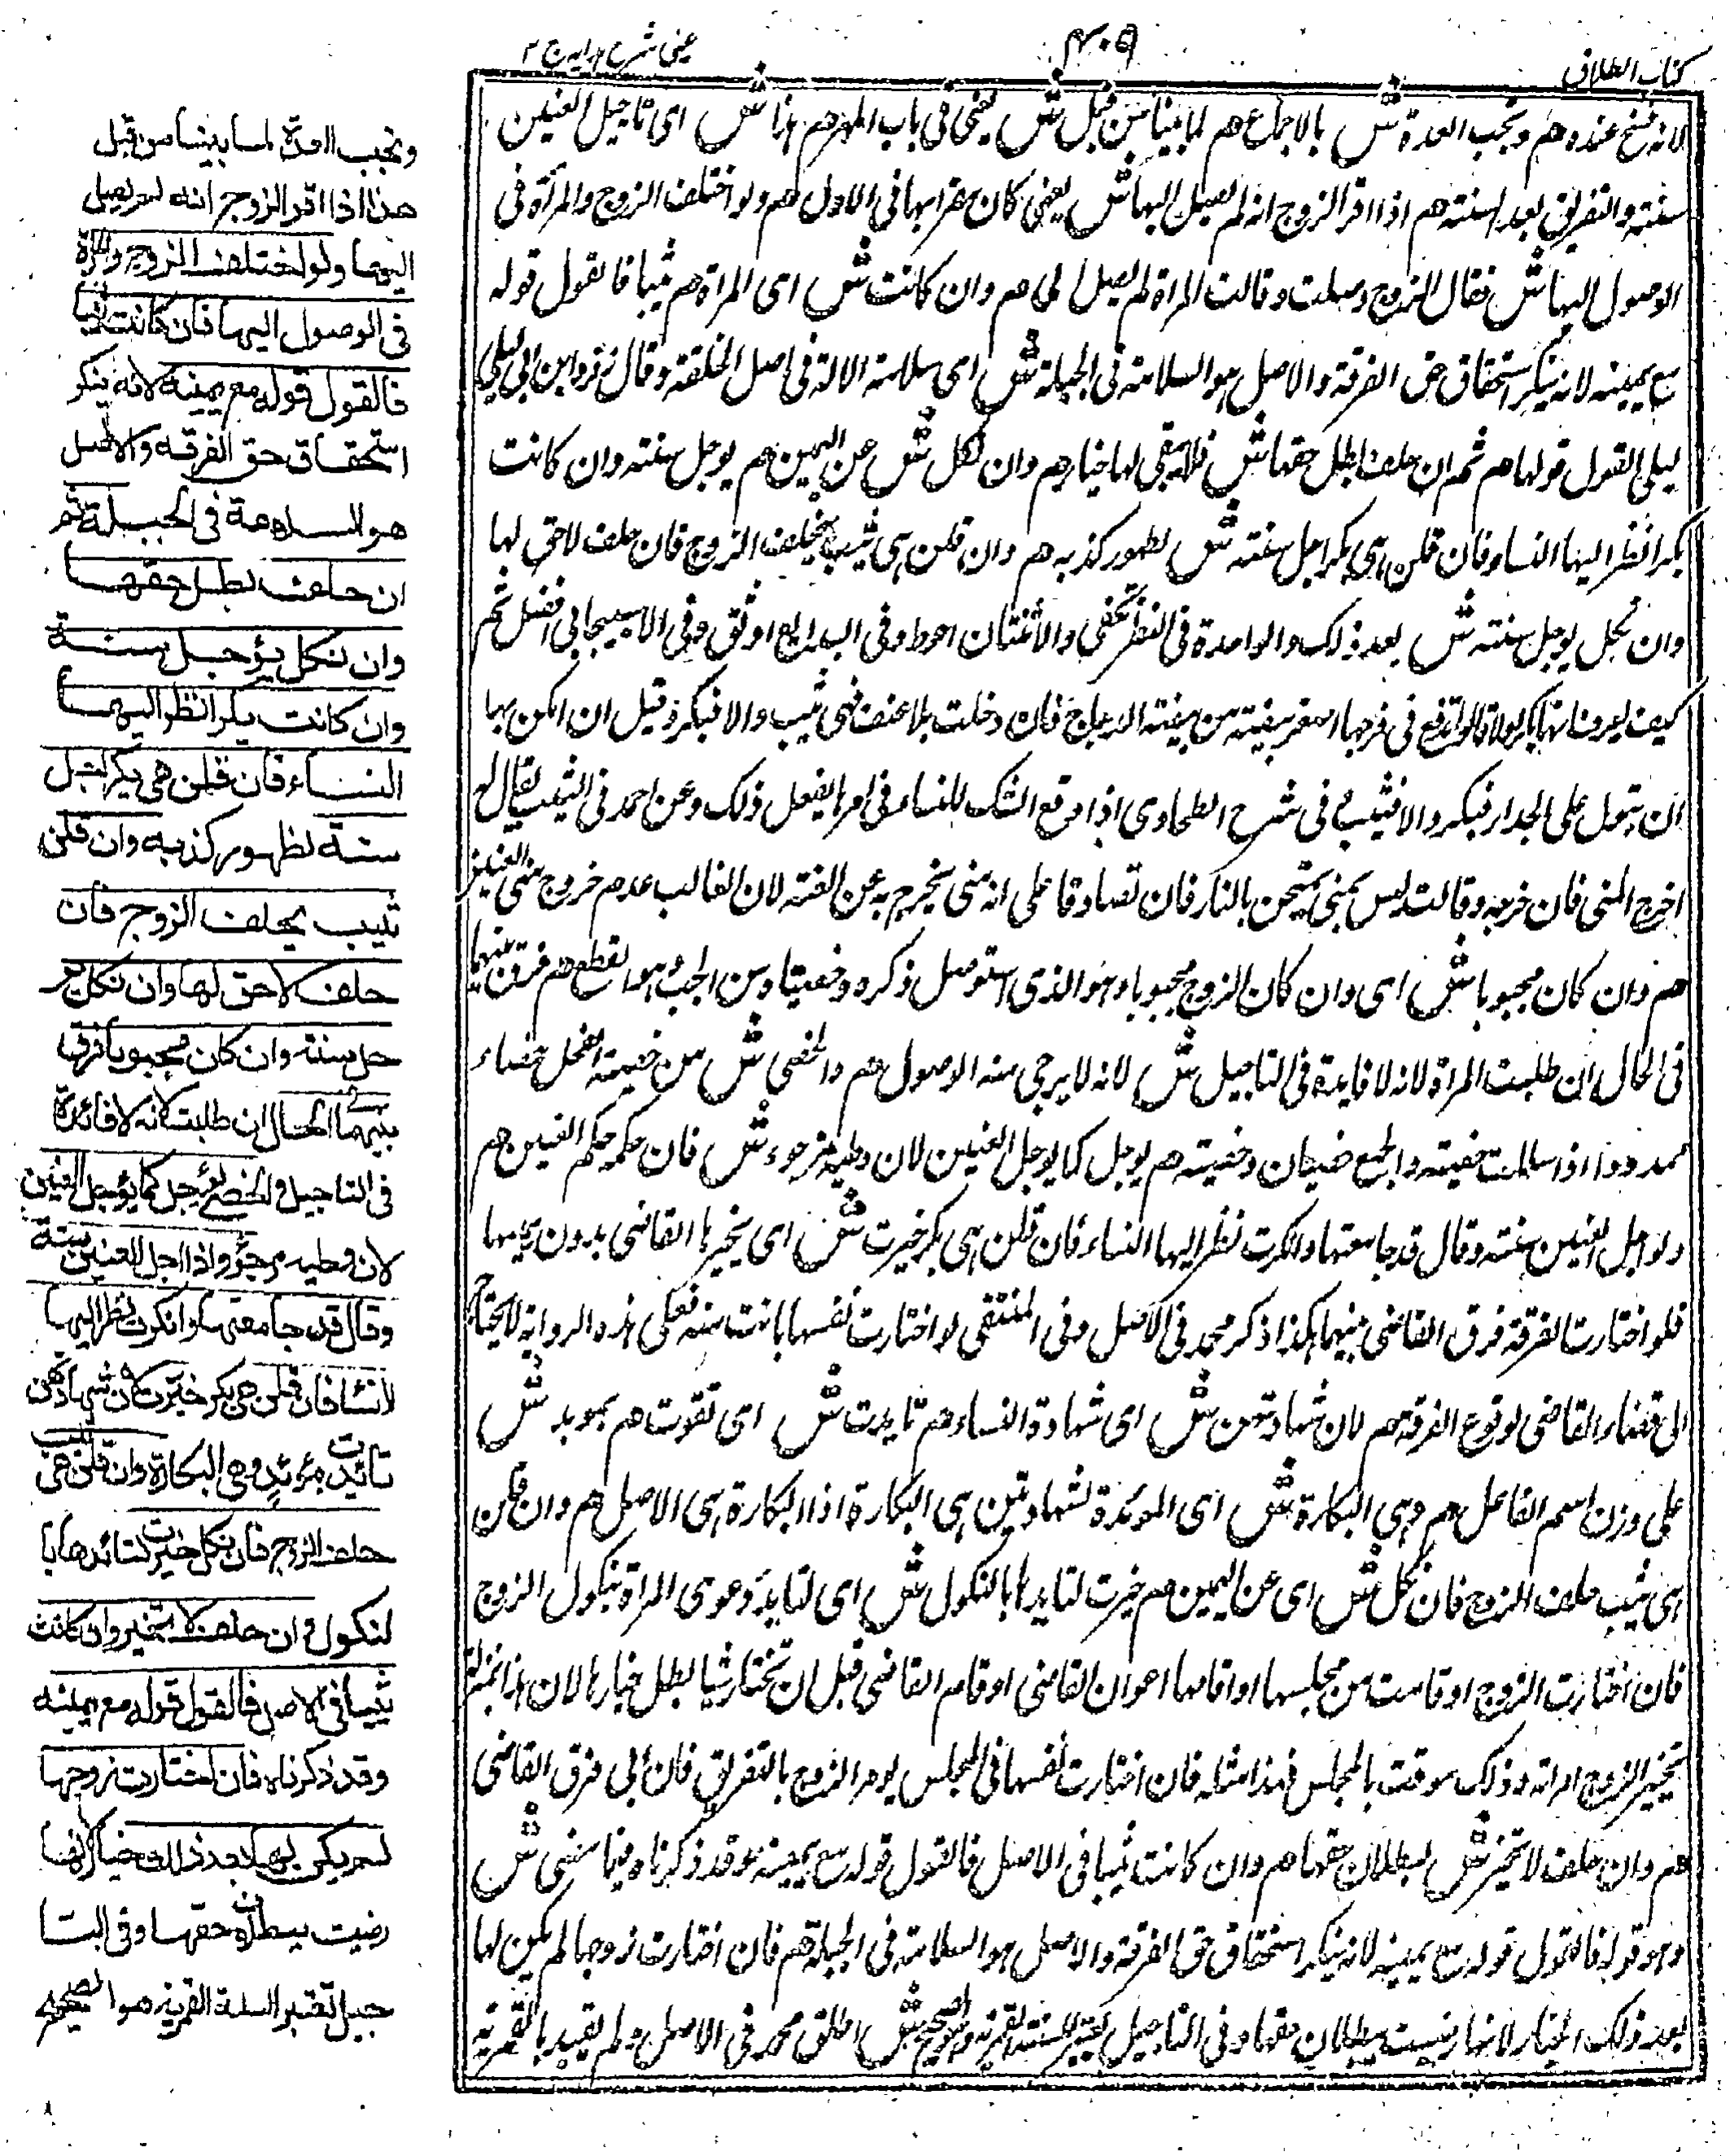 كتاب الطلاق
٤٠٩
عينى شرح هدايه ج ٢
لانه فسخ عنده هم وتجب العدة ش بالاجماع هم لما بينا من قبل ش يعنى فى باب المهر هم هذا ش اى تاجيل العنين
سنته والتفريق بعد السنته هم اذا اقر الزوج انه لم يصل اليها ش يعنى كان مقرا بها فى الاول هم ولو اختلف الزوج والمرأة فى
الوصول اليها ش فقال الزوج وصلت وقالت المراة لم يصل الى هم وان كانت ش اى المراة هم ثيبا فالقول قوله
مع يمينه لانه ينكر استحقاق حق الفرقة والاصل هو السلامته فى الجبلة ش اى سلامته الالة فى اصل الخلقته وقال زفر وابن ابى ليلى
ليلى القول قولها هم ثم ان حلف بطل حقها ش فلا يبقى لها خيار هم وان نكل ش عن اليمين هم يوجل سنته وان كانت
بكرا نظر اليها النساء فان قلن هى بكر اجل سنته ش لظهور كذبه هم وان قلن هى ثيب يحلف الزوج فان حلف لا حق لها
وان نكل يوجل سنته ش بعد ذلك والواحدة فى النظر تكفى والاثنتان احوط وفى البدائع اوثق وفى الاسبيجابى افضل ثم
كيف يعرف انها بكر اولا قالوا تدفع فى فرجها اصغر بيضته من بيضته الدجاج فان دخلت بلا عنف فهى ثيب والا فبكر وقيل ان امكن بها
ان تبول على الجدار فبكر والا فثيب وفى شرح الطحاوى اذا وقع الشك للنساء فى امرها يفعل ذلك وعن احمد فى الثيب يقال له
اخرج المنى فان خرجه وقالت ليس بمنى يمتحن بالنار فان تصادقا على انه منى يخرج به عن العنته لان الغالب عدم خروج منى العنين
هم وان كان مجبوبا ش اى وان كان الزوج مجبوبا وهو الذى استوصل ذكره وخصيتاه من الجب وهو القطع هم فرق بينهما
فى الحال ان طلبت المراة لانه لا فايدة فى التاجيل ش لانه لا يرجى منه الوصول هم والخصى ش من خصيته الفحل خصاء
ممدودا اذا سللت خصيته والجمع خصيان وخصيته هم يوجل كما يوجل العنين لان وطيه مرجوء ش فان حكمه حكم العنين هم
ولو اجل العنين سنته وقال قد جامعتها وانكرت نظر اليها النساء فان قلن هى بكر خيرت ش اى يخيرها القاضى بدون يمينها
فلو اختارت الفرقة فرق القاضى بينهما هكذا ذكر محمد فى الاصل وفى المنتقى لو اختارت نفسها بانت منه فعلى هذه الرواية لا يحتاج
الى قضاء القاضى لوقوع الفرقة هم لان شهادتهن ش اى شهادة النساء هم تايدت ش اى تقوت هم بمويد ش
على وزن اسم الفاعل هم وهى البكارة ش اى المويدة لشهادتهن هى البكارة اذ البكارة هى الاصل هم وان قلن
هى ثيب حلف الزوج فان نكل ش اى عن اليمين هم خيرت لتايدها بالنكول ش اى لتايد دعوى المراة بنكول الزوج
فان اختارت الزوج او قامت من مجلسها او اقامها اعوان القاضى او قام القاضى قبل ان تختار شيا بطل خيارها لان هذا بمنزلة
تخيير الزوج امراته وذلك موقت بالمجلس فهذا مثله فان اختارت نفسها فى المجلس يومر الزوج بالتفريق فان ابى فرق القاضى
هم وان حلف لا تخير ش لبطلان حقها هم وان كانت ثيبا فى الاصل فالقول قوله مع يمينه وقد ذكرناه فيما مضى ش
وهو قوله فالقول قوله مع يمينه لانه ينكر استحقاق حق الفرقة والاصل هو السلامته فى الجبلة هم فان اختارت زوجها لم يكن لها
بعد ذلك الخيار لانها رضيت ببطلان حقها وفى التاجيل تعتبر السنته القمرية هو الصحيح ش اطلق محمد فى الاصل ولم يقيد بالقمرية
وتجب العدة لما بينا من قبل
هذا اذا اقر الزوج انه لم يصل
اليها ولو اختلف الزوج والمرأة
فى الوصول اليها فان كانت ثيبا
فالقول قوله مع يمينه لانه ينكر
استحقاق حق الفرقه والاصل
هو السلامة فى الجبلة ثم
ان حلف بطل حقها
وان نكل يؤجل سنة
وان كانت بكرا نظر اليها
النساء فان قلن هى بكر اجل
سنة لظهور كذبه وان قلن
ثيب يحلف الزوج فان
حلف لا حق لها وان نكل يؤ
جل سنته وان كان مجبوبا فرق
بينهما فى الحال ان طلبت لانه لا فائدة
فى التاجيل والخصى يؤجل كما يؤجل العنين
لان وطيه مرجؤ واذا اجل العنين سنة
وقال قد جامعتها وانكرت نظر اليها
النساء فان قلن هى بكر خيرت لان شهادتهن
تائدت بمؤيد وهى البكارة وان قلن هى ثيب
حلف الزوج فان نكل خيرت لتائدها با
لنكول وان حلف لا تخير وان كانت
ثيبا فى الاصل فالقول قوله مع يمينه
وقد ذكرناه فان اختارت زوجها
لم يكن لها بعد ذلك خيار لانها
رضيت ببطلان حقها وفى التا
جيل تعتبر السنة القمرية هو الصحيح